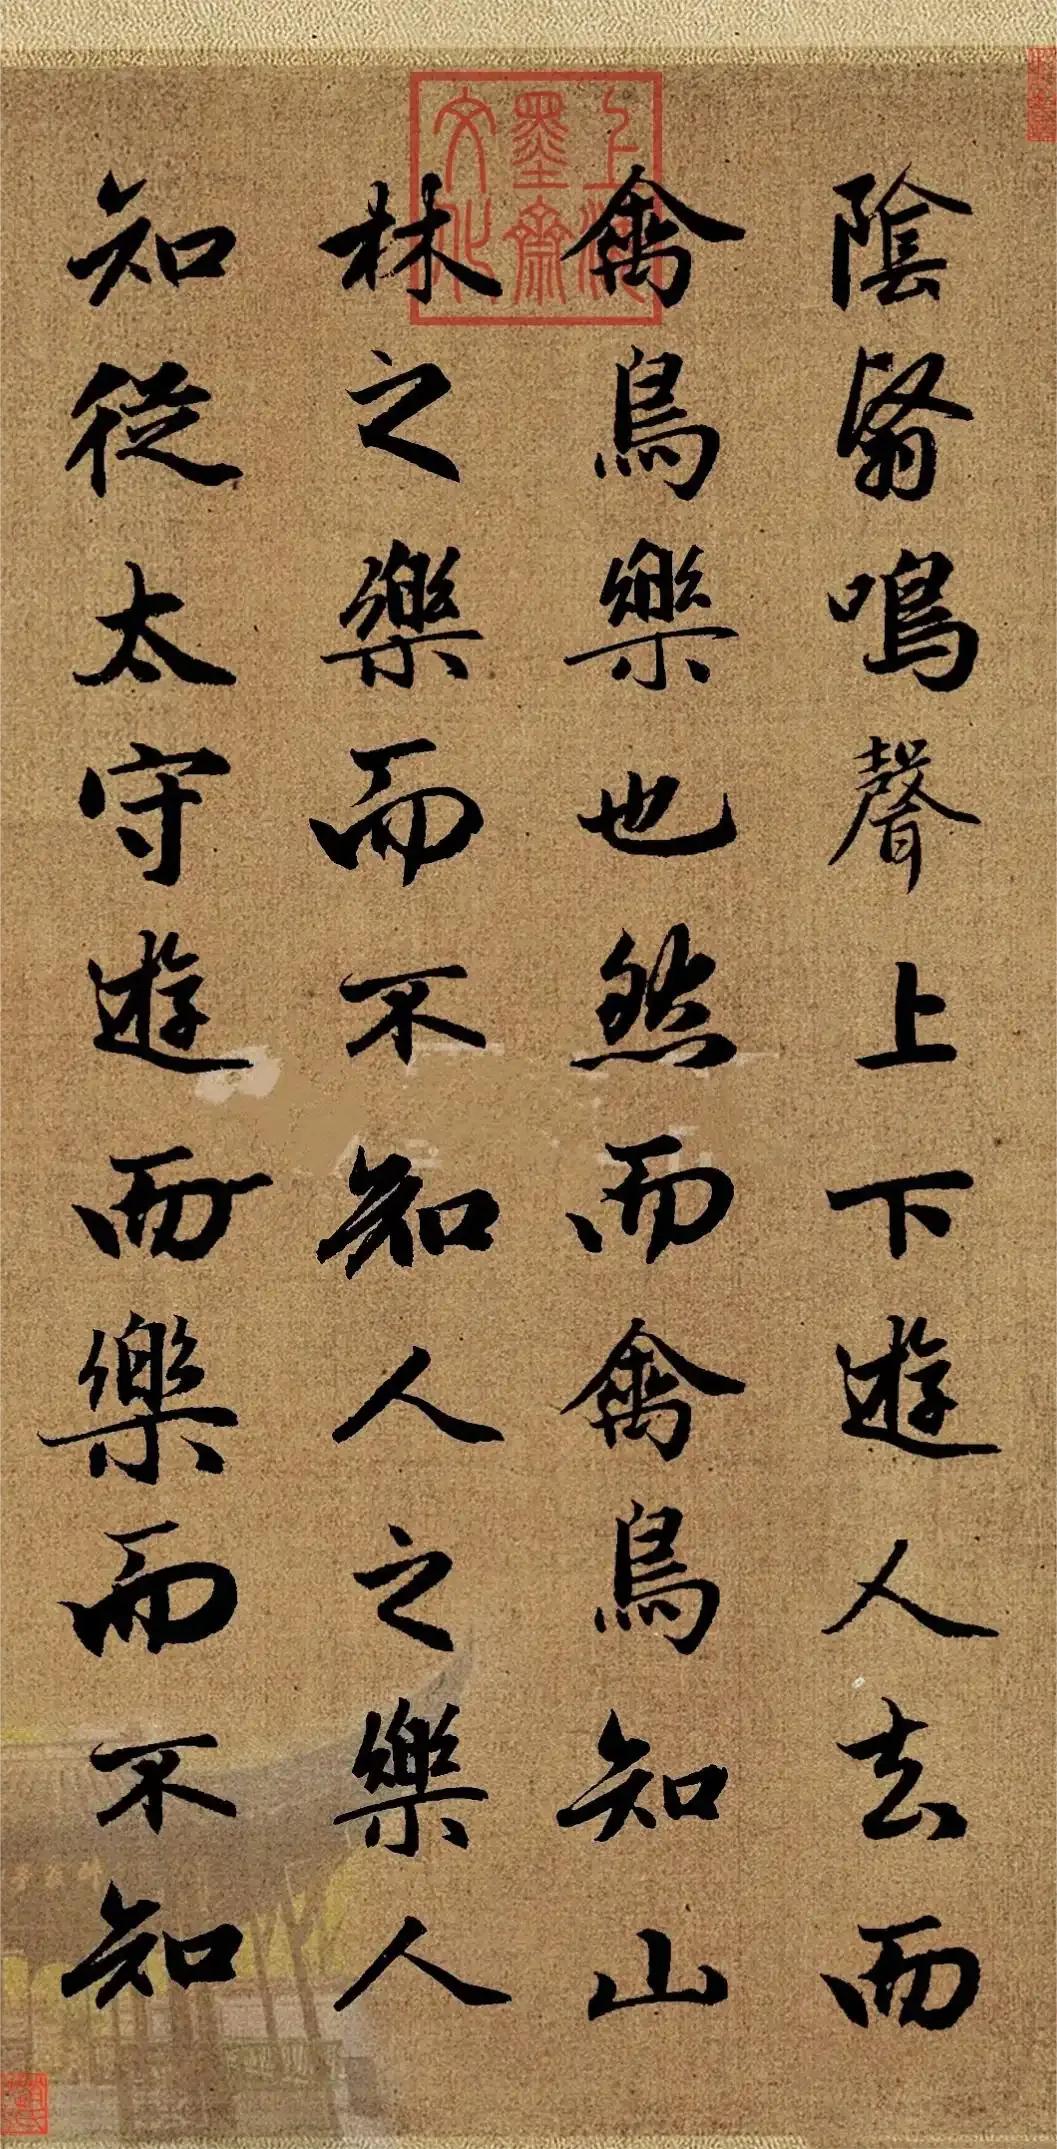 陰翳鳴聲上下遊人去而
禽鳥樂也然而禽鳥知山
林之樂而不知人之樂人
知從太守遊而樂而不知
上海墨齋文化